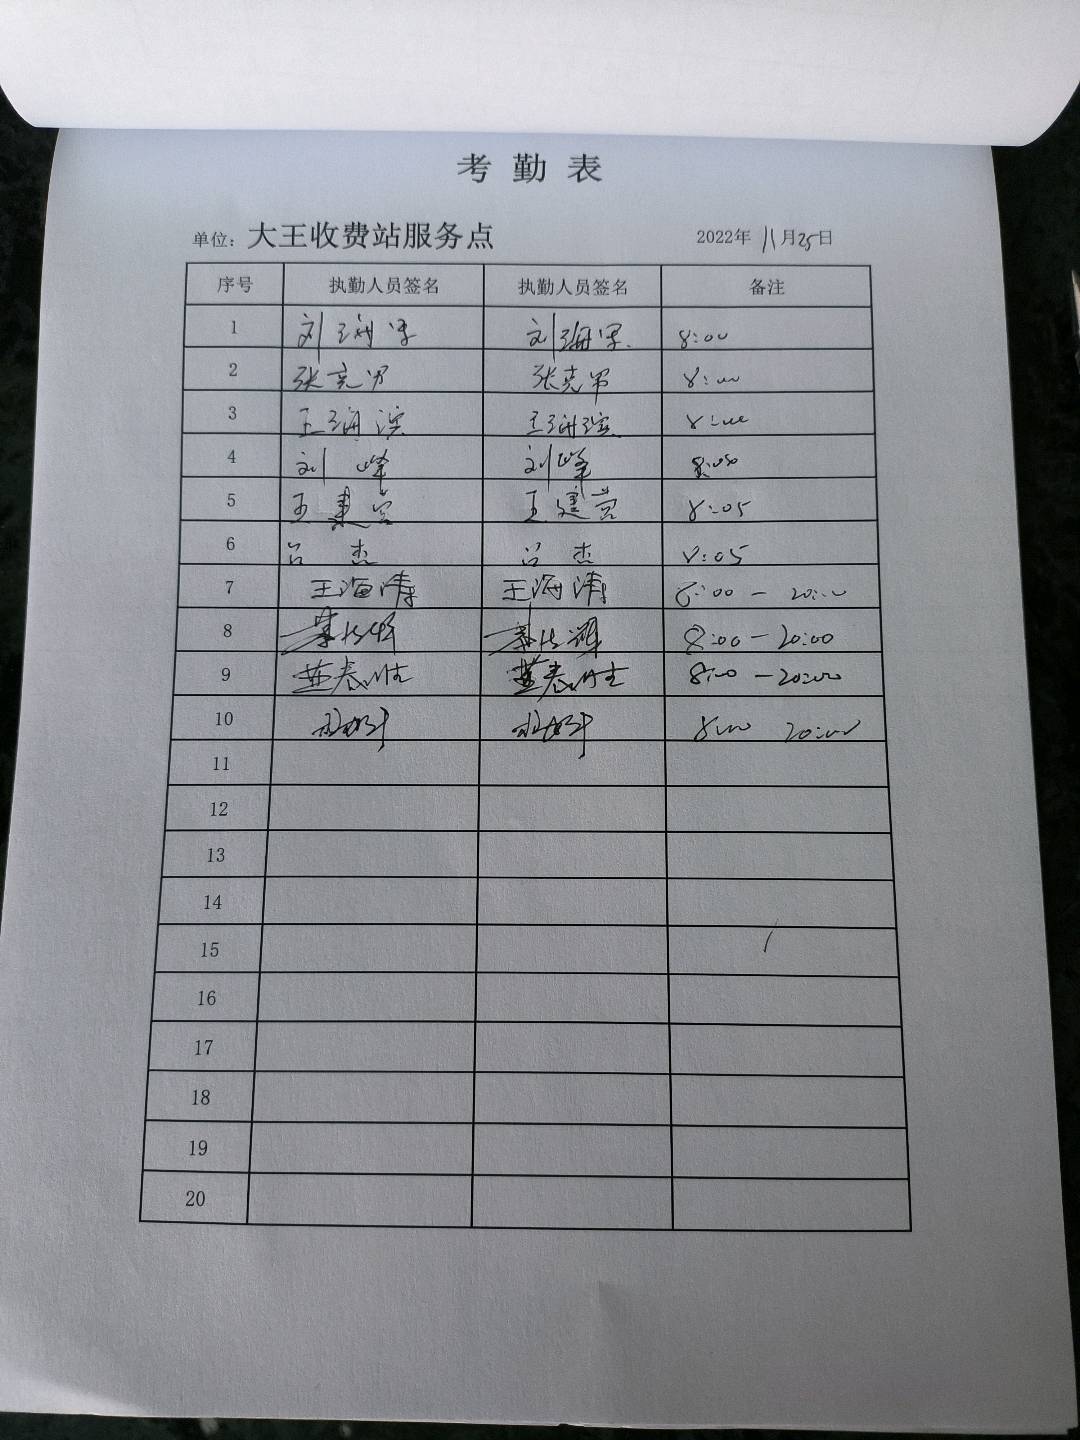 考勤表
单位：大王收费站服务点 2022年11月25日
序号 执勤人员签名 执勤人员签名 备注
1 刘海军 刘海军 8:00
2 张克军 张克军 8:00
3 王海滨 王海滨 8:00
4 刘峰 刘峰 8:00
5 王建党 王建党 8:05
6 吕杰 吕杰 8:05
7 王海涛 王海涛 8:00 — 20:00
8 8:00 — 20:00
9 8:00 — 20:00
10 8:00 20:00
11
12
13
14
15
16
17
18
19
20